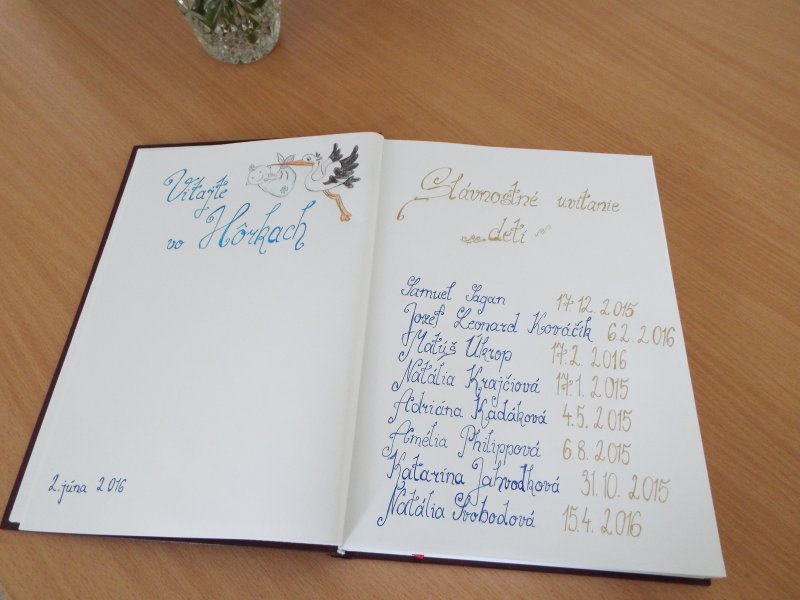 Vítajte
vo Hôrkach
2. júna 2016
Slávnostné uvítanie
detí
Samuel Sagan 17.12. 2015
Jozef Leonard Kováčik 6.2. 2016
Matúš Úkrop 17.2. 2016
Natália Krajčiová 17.1. 2015
Adriána Kadáková 4.5. 2015
Amélia Philippová 6.8. 2015
Katarína Jahodková 31.10. 2015
Natália Svobodová 15.4. 2016